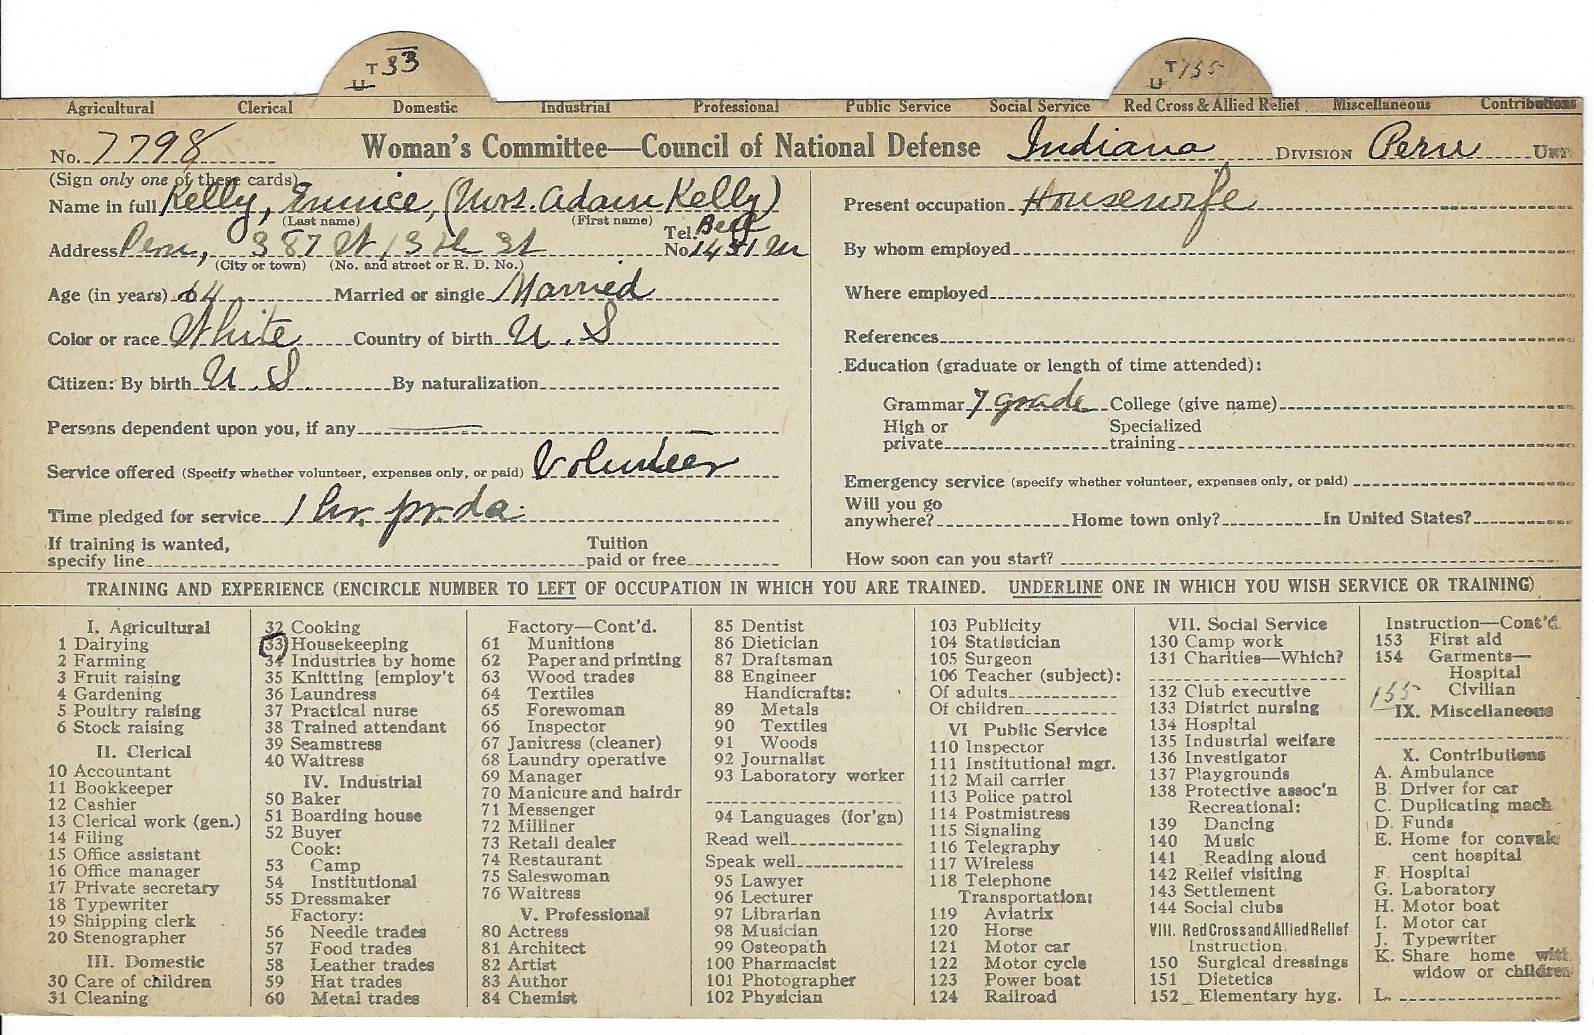 T 33 U
T 155 U
Agricultural Clerical Domestic Industrial Professional Public Service Social Service Red Cross & Allied Relief Miscellaneous Contributions
No. 7798 Woman's Committee—Council of National Defense Indiana DIVISION Peru UNIT
(Sign only one of these cards)
Name in full Kelly, Eunice, (Mrs. Adam Kelly)
(Last name) (First name)
Address Peru, 387 W 13th St Tel. No. Bell 1431 M
(City or town) (No. and street or R. D. No.)
Age (in years) 64 Married or single Married
Color or race White Country of birth U. S
Citizen: By birth U. S. By naturalization
Persons dependent upon you, if any —
Service offered (Specify whether volunteer, expenses only, or paid) Volunteer
Time pledged for service 1 hr. pr. da.
If training is wanted, specify line Tuition paid or free
Present occupation Housewife
By whom employed
Where employed
References
Education (graduate or length of time attended):
Grammar 7 grade College (give name)
High or private Specialized training
Emergency service (specify whether volunteer, expenses only, or paid)
Will you go anywhere? Home town only? In United States?
How soon can you start?
TRAINING AND EXPERIENCE (ENCIRCLE NUMBER TO LEFT OF OCCUPATION IN WHICH YOU ARE TRAINED. UNDERLINE ONE IN WHICH YOU WISH SERVICE OR TRAINING)
I. Agricultural
1 Dairying
2 Farming
3 Fruit raising
4 Gardening
5 Poultry raising
6 Stock raising
II. Clerical
10 Accountant
11 Bookkeeper
12 Cashier
13 Clerical work (gen.)
14 Filing
15 Office assistant
16 Office manager
17 Private secretary
18 Typewriter
19 Shipping clerk
20 Stenographer
III. Domestic
30 Care of children
31 Cleaning
32 Cooking
33 Housekeeping
34 Industries by home
35 Knitting [employ't
36 Laundress
37 Practical nurse
38 Trained attendant
39 Seamstress
40 Waitress
IV. Industrial
50 Baker
51 Boarding house
52 Buyer
Cook:
53 Camp
54 Institutional
55 Dressmaker
Factory:
56 Needle trades
57 Food trades
58 Leather trades
59 Hat trades
60 Metal trades
Factory—Cont'd.
61 Munitions
62 Paper and printing
63 Wood trades
64 Textiles
65 Forewoman
66 Inspector
67 Janitress (cleaner)
68 Laundry operative
69 Manager
70 Manicure and hairdr
71 Messenger
72 Milliner
73 Retail dealer
74 Restaurant
75 Saleswoman
76 Waitress
V. Professional
80 Actress
81 Architect
82 Artist
83 Author
84 Chemist
85 Dentist
86 Dietician
87 Draftsman
88 Engineer
Handicrafts:
89 Metals
90 Textiles
91 Woods
92 Journalist
93 Laboratory worker
94 Languages (for'gn)
Read well
Speak well
95 Lawyer
96 Lecturer
97 Librarian
98 Musician
99 Osteopath
100 Pharmacist
101 Photographer
102 Physician
103 Publicity
104 Statistician
105 Surgeon
106 Teacher (subject):
Of adults
Of children
VI Public Service
110 Inspector
111 Institutional mgr.
112 Mail carrier
113 Police patrol
114 Postmistress
115 Signaling
116 Telegraphy
117 Wireless
118 Telephone
Transportation:
119 Aviatrix
120 Horse
121 Motor car
122 Motor cycle
123 Power boat
124 Railroad
VII. Social Service
130 Camp work
131 Charities—Which?
132 Club executive
133 District nursing
134 Hospital
135 Industrial welfare
136 Investigator
137 Playgrounds
138 Protective assoc'n
Recreational:
139 Dancing
140 Music
141 Reading aloud
142 Relief visiting
143 Settlement
144 Social clubs
VIII. Red Cross and Allied Relief
Instruction.
150 Surgical dressings
151 Dietetics
152 Elementary hyg.
Instruction—Cont'd.
153 First aid
154 Garments—
Hospital
155 Civilian
IX. Miscellaneous
X. Contributions
A. Ambulance
B. Driver for car
C. Duplicating mach
D. Funds
E. Home for convales
cent hospital
F. Hospital
G. Laboratory
H. Motor boat
I. Motor car
J. Typewriter
K. Share home with
widow or children
L.